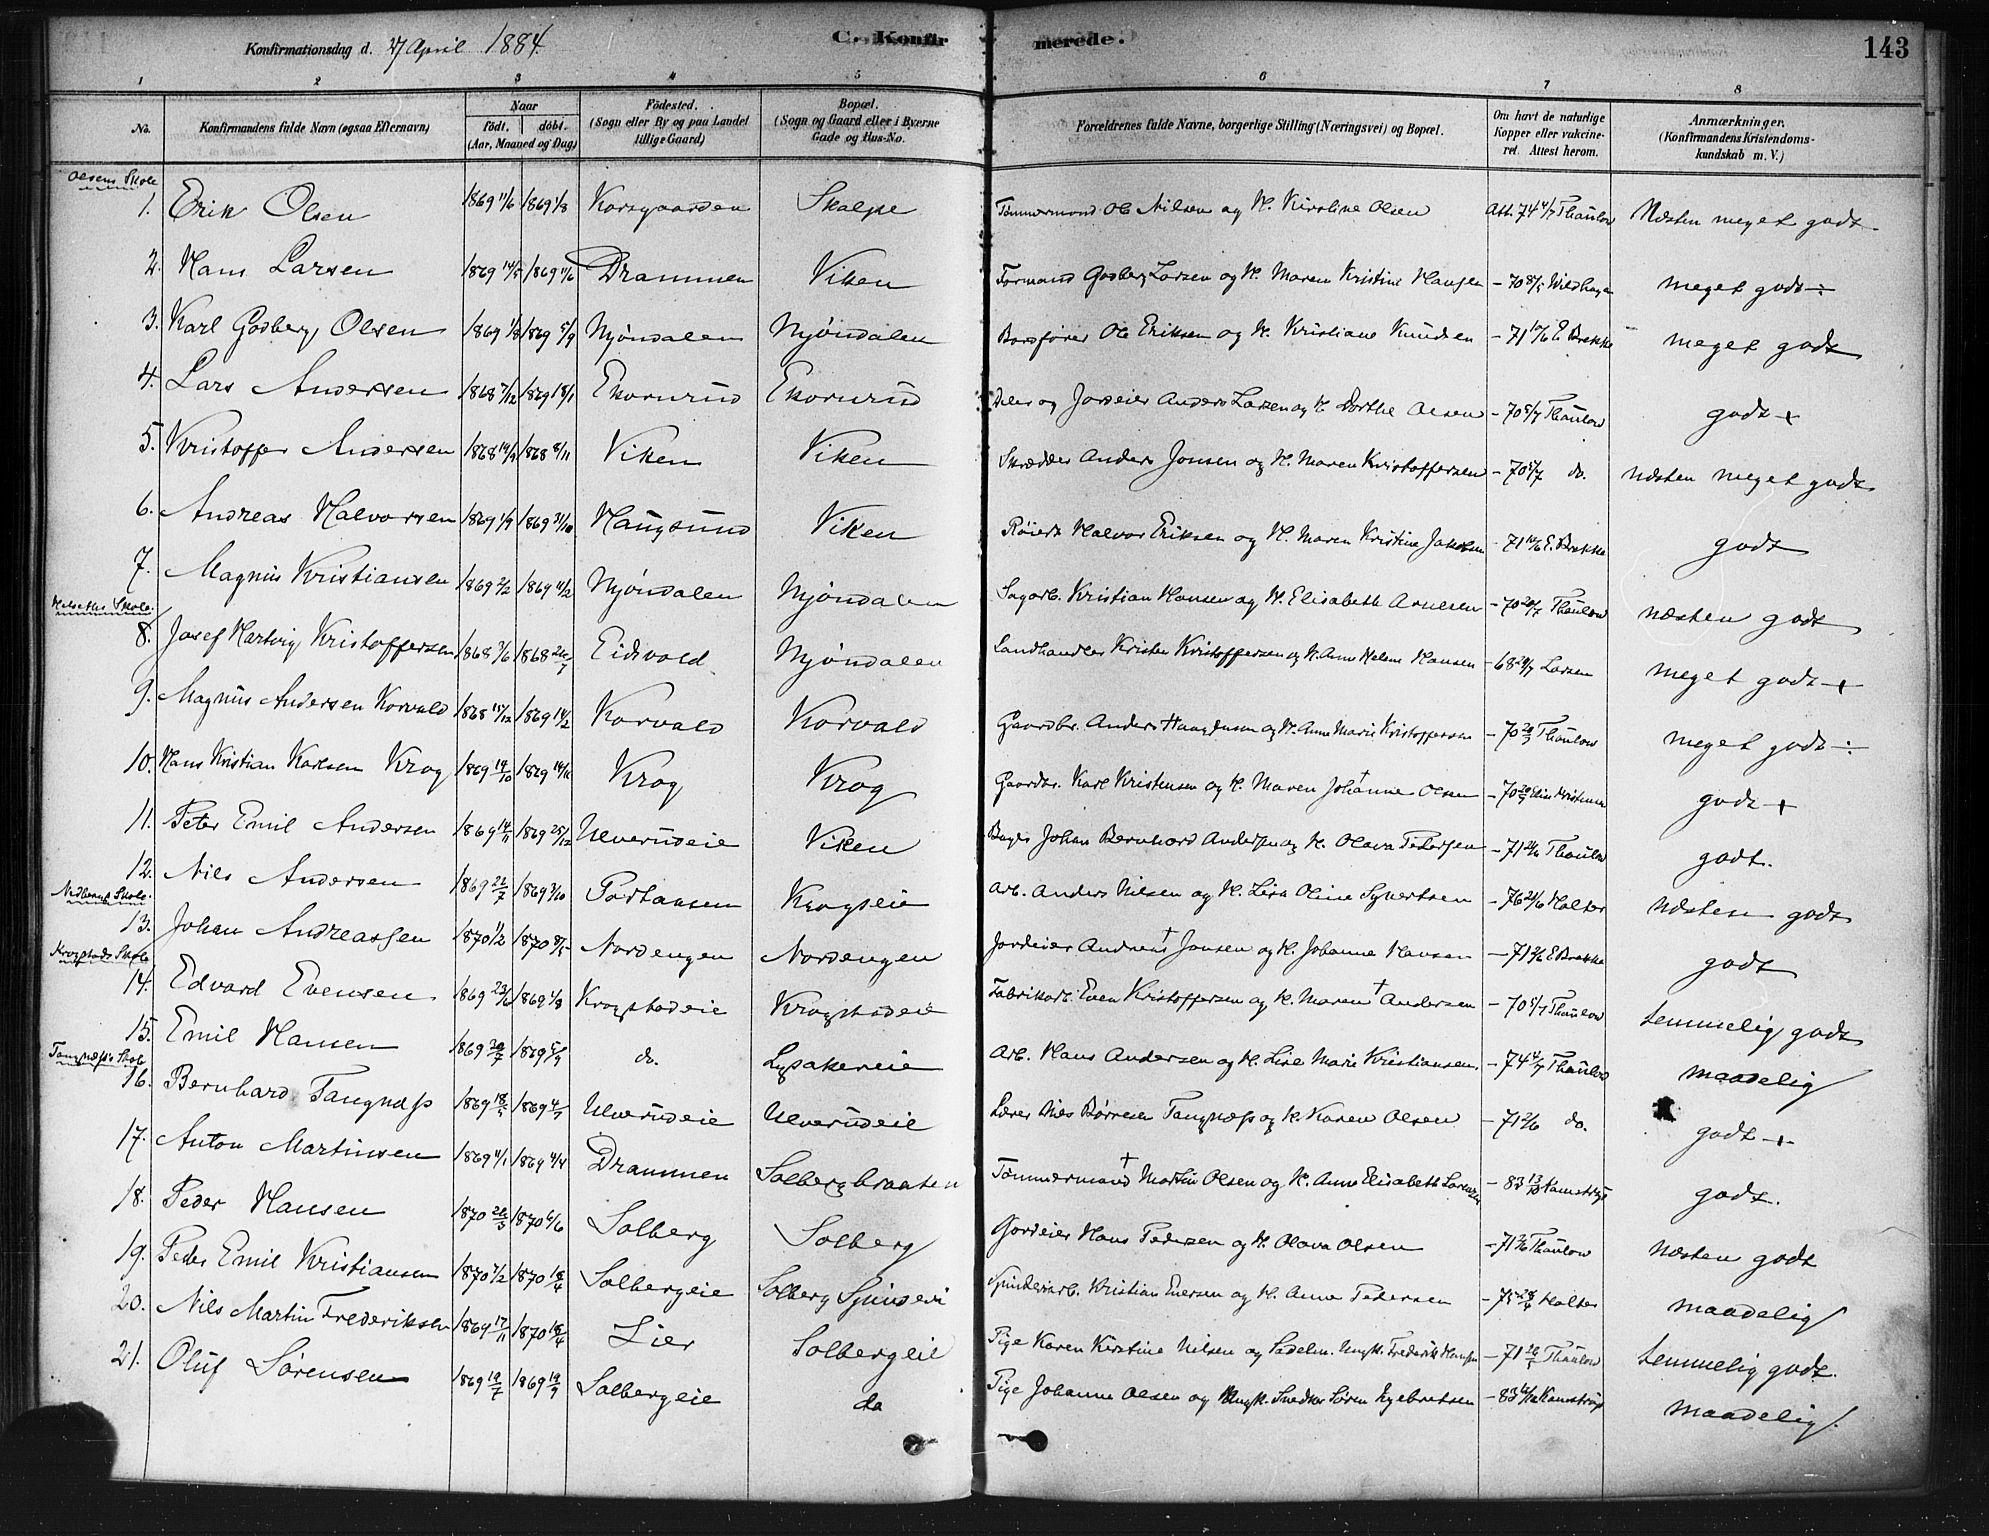 Konfirmationsdag d. 27 April 1884.
C. Konfirmerede.
143
1 2 3 4 5 6 7 8
No. Konfirmandens fulde Navn (ogsaa Efternavn) Naar født. døbt. (Aar, Maaned og Dag) Födested. (Sogn eller By og paa Landet tillige Gaard) Bopæl. (Sogn og Gaard eller i Byerne Gade og Hus-No. Forældrenes fulde Navne, borgerlige Stilling (Næringsvei) og Bopæl. Om havt de naturlige Kopper eller vakcineret. Attest herom. Anmærkninger. (Konfirmandens Kristendomskundskab m. V.)
Olsens Skole
1. Erik Olsen 1869 11/6 1869 1/8 Korsgaarden Skalpe Tømmermand Ole Nilsen og H. Karoline Olsen Att. 74 4/7 Thaulow Næsten meget godt
2. Hans Larsen 1869 14/5 1869 Drammen Viken Formand Godberg Larsen og H. Maren Kristine Hansen - 70 8/5 Wildhagen meget godt ÷
3. Karl Godberg Olsen 1869 1/8 1869 5/9 Mjöndalen Mjöndalen Bordfører Ole Eriksen og H. Kristiane Knudsen - 71 E. Brekke meget godt
4. Lars Andersen 1868 7/12 1869 18/1 Ekornrud Ekornrud Deler og Jordeier Anders Larsen og H. Dorthe Olsen - 70 5/7 Thaulow godt +
5. Kristoffer Andersen 1868 19/9 1868 8/11 Viken Viken Skrædder Anders Jonsen og H. Maren Kristoffersen - 70 5/7 do. næsten meget godt
6. Andreas Halvorsen 1869 1/9 1869 31/10 Haugsund Viken Halvor Eriksen og H. Maren Kristine Jakobsen - 71 E. Brekke godt
7. Magnus Kristiansen 1869 2/2 1869 Mjöndalen Mjöndalen Sagarb. Kristian Hansen og H. Elisabeth Arnesen - 70 20/7 Thaulow næsten godt
Skole.
8. Josef Hartvig Kristoffersen 1868 7/6 1868 26/7 Eidsvold Mjöndalen Landhandler Kristen Kristoffersen og H. Anne Helene Hansen - 68 Larsen meget godt +
9. Magnus Andersen Korvald 1868 15/12 1869 14/2 Korvald Korvald Gaardbr. Anders Haagensen og H. Anne Marie Kristoffersen - 70 Thaulow meget godt ÷
10. Hans Kristian Karlsen Krog 1869 19/10 1869 Krog Krog Gaardbr. Karl Kristensen og H. Maren Johanne † Olsen - 70 Elise Kristensen godt +
11. Peter Emil Andersen 1869 14/11 1869 25/12 Ulverudeie Viken Bager Johan Bernhard Andersen og H. Olava Pedersen - 71 Thaulow godt.
12. Nils Andersen 1869 22/7 1869 3/10 Portaasen Krogseie Arb. Anders Nilsen og H. Lisa Oline Syvertsen - 76 Holter næsten godt
Skole.
13. Johan Andreassen 1870 1/2 1870 8/5 Nordengen Nordengen Jordeier Andreas † Jansen og H. Johanne Hansen - 71 E. Brekke godt
Krogstads Skole
14. Edvard Evensen 1869 23/6 1869 1/8 Krogstadeie Krogstadeie Fabrikarb. Even Kristoffersen og H. Maren † Andersen - 70 5/7 Thaulow temmelig godt
15. Emil Hansen 1869 20/7 1869 5/9 do. Lysakereie Arb. Hans Andersen og H. Lise Marie Kristiansen. - 74 4/7 Thaulow maadelig
Tangnæss Skole
16. Bernhard Tangnæss 1869 18/5 1869 4/7 Ulverudeie Ulverudeie Lærer Nils Børresen Tangnæss og H. Karen Olsen - 71 2/6 do. godt +
17. Anton Martinsen 1869 1869 4/4 Drammen Solbergbraaten Tømmermand † Martin Olsen og H. Anne Elisabeth Lorenzen - 83 13/10 Kamstrup godt.
18. Peder Hansen 1870 26/3 1870 6/6 Solberg Solberg Jordeier Hans Pedersen og H. Olava Olsen - 71 2/6 Thaulow Næsten godt
19. Peder Emil Kristiansen 1870 7/2 1870 18/4 Solbergeie Solberg Spinderi Spinderiarb. Kristian Enersen og H. Anne Pedersen - 75 Holter maadelig
20. Nils Martin Frederiksen 1869 17/11 1870 18/4 Lier Solbergeie Pige Karen Kirstine Nilsen og Sadelm. Ungk. Frederik Hansen - 71 26/5 Thaulow temmelig godt.
21. Oluf Sørensen 1869 19/7 1869 19/9 Solbergeie do Pige Johanne Olsen og Ungk. Snedker Søren Ingebretsen - 83 Kamstrup maadelig.